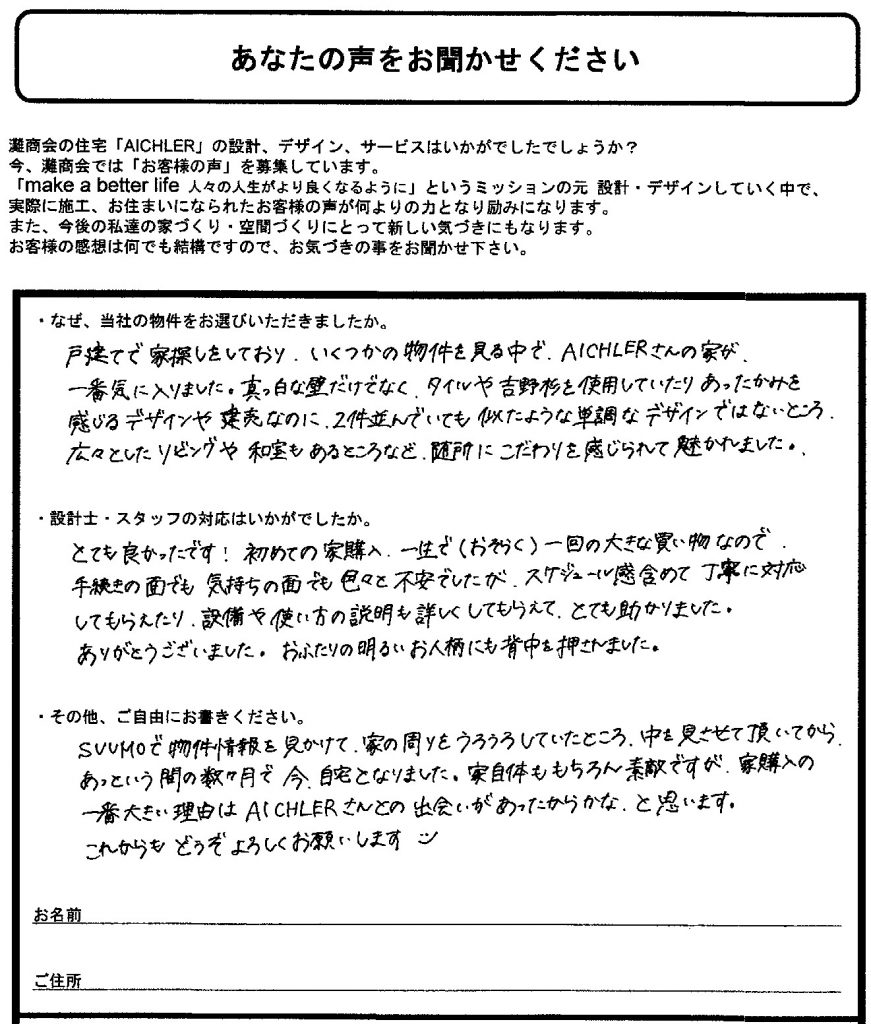 あなたの声をお聞かせください
灘商会の住宅「AICHLER」の設計、デザイン、サービスはいかがでしたでしょうか？
今、灘商会では「お客様の声」を募集しています。
「make a better life 人々の人生がより良くなるように」というミッションの元 設計・デザインしていく中で、
実際に施工、お住まいになられたお客様の声が何よりの力となり励みになります。
また、今後の私達の家づくり・空間づくりにとって新しい気づきにもなります。
お客様の感想は何でも結構ですので、お気づきの事をお聞かせ下さい。
・なぜ、当社の物件をお選びいただきましたか。
戸建てで家探しをしており、いくつかの物件を見る中で、AICHLERさんの家が、
一番気に入りました。真っ白な壁だけでなく、タイルや吉野杉を使用していたりあったかみを
感じるデザインや建売なのに、2件並んでいても似たような単調なデザインではないところ、
広々としたリビングや和室もあるところなど、随所にこだわりを感じられて魅かれました。
・設計士・スタッフの対応はいかがでしたか。
とても良かったです！初めての家購入、一生で（おそらく）一回の大きな買い物なので、
手続きの面でも気持ちの面でも色々と不安でしたが、スケジュール感含めて丁寧に対応
してもらえたり、設備や使い方の説明も詳しくしてもらえて、とても助かりました。
ありがとうございました。おふたりの明るいお人柄にも背中を押されました。
・その他、ご自由にお書きください。
SUUMOで物件情報を見かけて、家の周りをうろうろしていたところ、中を見させて頂いてから、
あっという間の数ヶ月で今、自宅となりました。家自体ももちろん素敵ですが、家購入の
一番大きい理由はAICHLERさんとの出会いがあったからかな、と思います。
これからもどうぞよろしくお願いします
お名前
ご住所